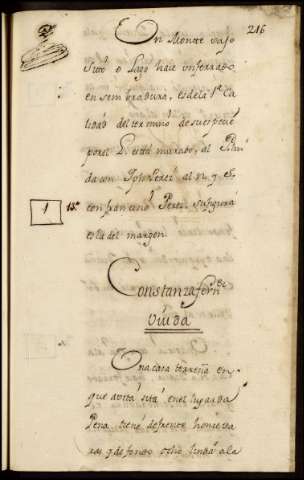 216
En Monte vajo
Sitio o Lago haie un ferrado
en sembradura, es de la 1ª Ca
lidad del termino de su especie
por el L. esta murado, al
da con Joseph Perez al N. y S.
con francisco Perez su figura
es la del margen
1 13ª
Constanza fern.ez
Viuda
Una casa terrena en
que avita sita en el lugar da
Pena tiene de frente honze va
ras y de fondo ocho linda a la